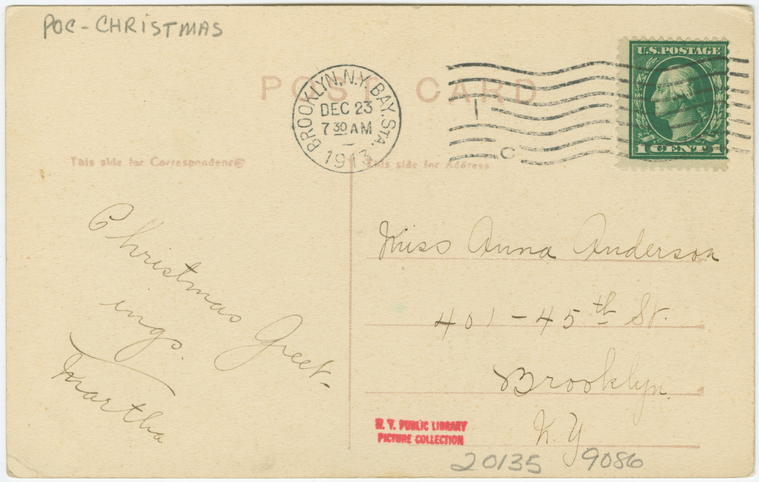 POC - CHRISTMAS
POST CARD
BROOKLYN, N.Y. BAY. STA.
DEC 23
7 30 AM
1913
U.S. POSTAGE
1 CENT 1
This side for Correspondence
This side for Address
Christmas Greet-
ings.
Martha
Miss Anna Anderson
401-45th St.
Brooklyn.
N.Y
N. Y. PUBLIC LIBRARY
PICTURE COLLECTION
20135 9086